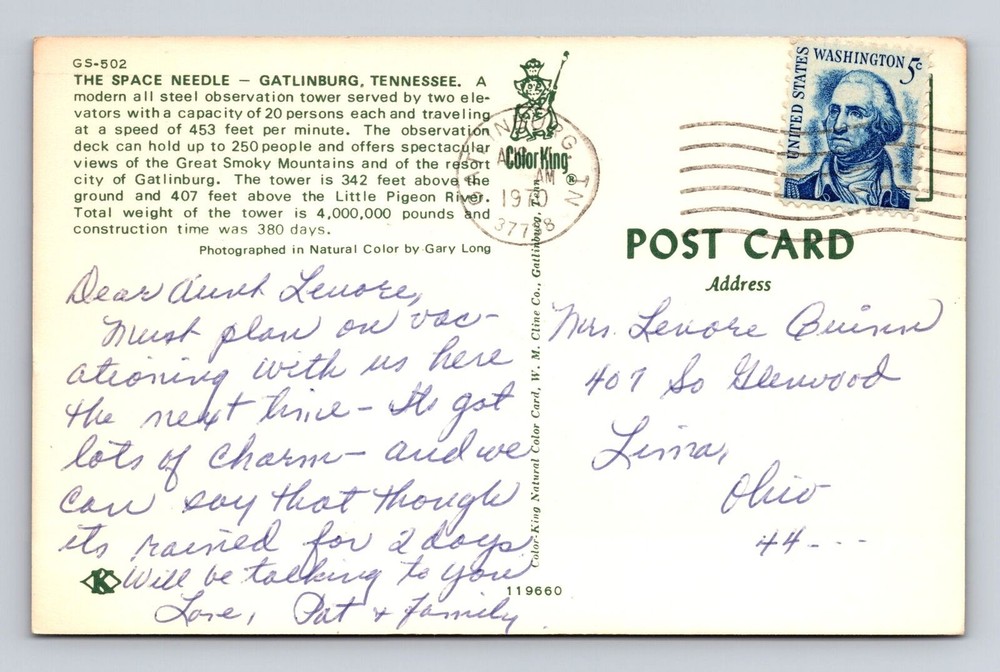 GS-502
THE SPACE NEEDLE — GATLINBURG, TENNESSEE. A
modern all steel observation tower served by two ele-
vators with a capacity of 20 persons each and traveling
at a speed of 453 feet per minute. The observation
deck can hold up to 250 people and offers spectacular
views of the Great Smoky Mountains and of the resort
city of Gatlinburg. The tower is 342 feet above the
ground and 407 feet above the Little Pigeon River.
Total weight of the tower is 4,000,000 pounds and
construction time was 380 days.
Photographed in Natural Color by Gary Long
Dear Aunt Lenore,
Must plan on vac-
ationing with us here
the next time - Its got
lots of charm - and we
can say that though
its rained for 2 days.
Will be talking to you
Love, Pat + Family
K
ColorKing®
GATLINBURG, TN
AM
1970
37738
Color-King Natural Color Card, W. M. Cline Co., Gatlinburg, Tenn.
119660
UNITED STATES
WASHINGTON 5c
POST CARD
Address
Mrs. Lenore Quinn
407 So Glenwood
Lima,
Ohio
44---